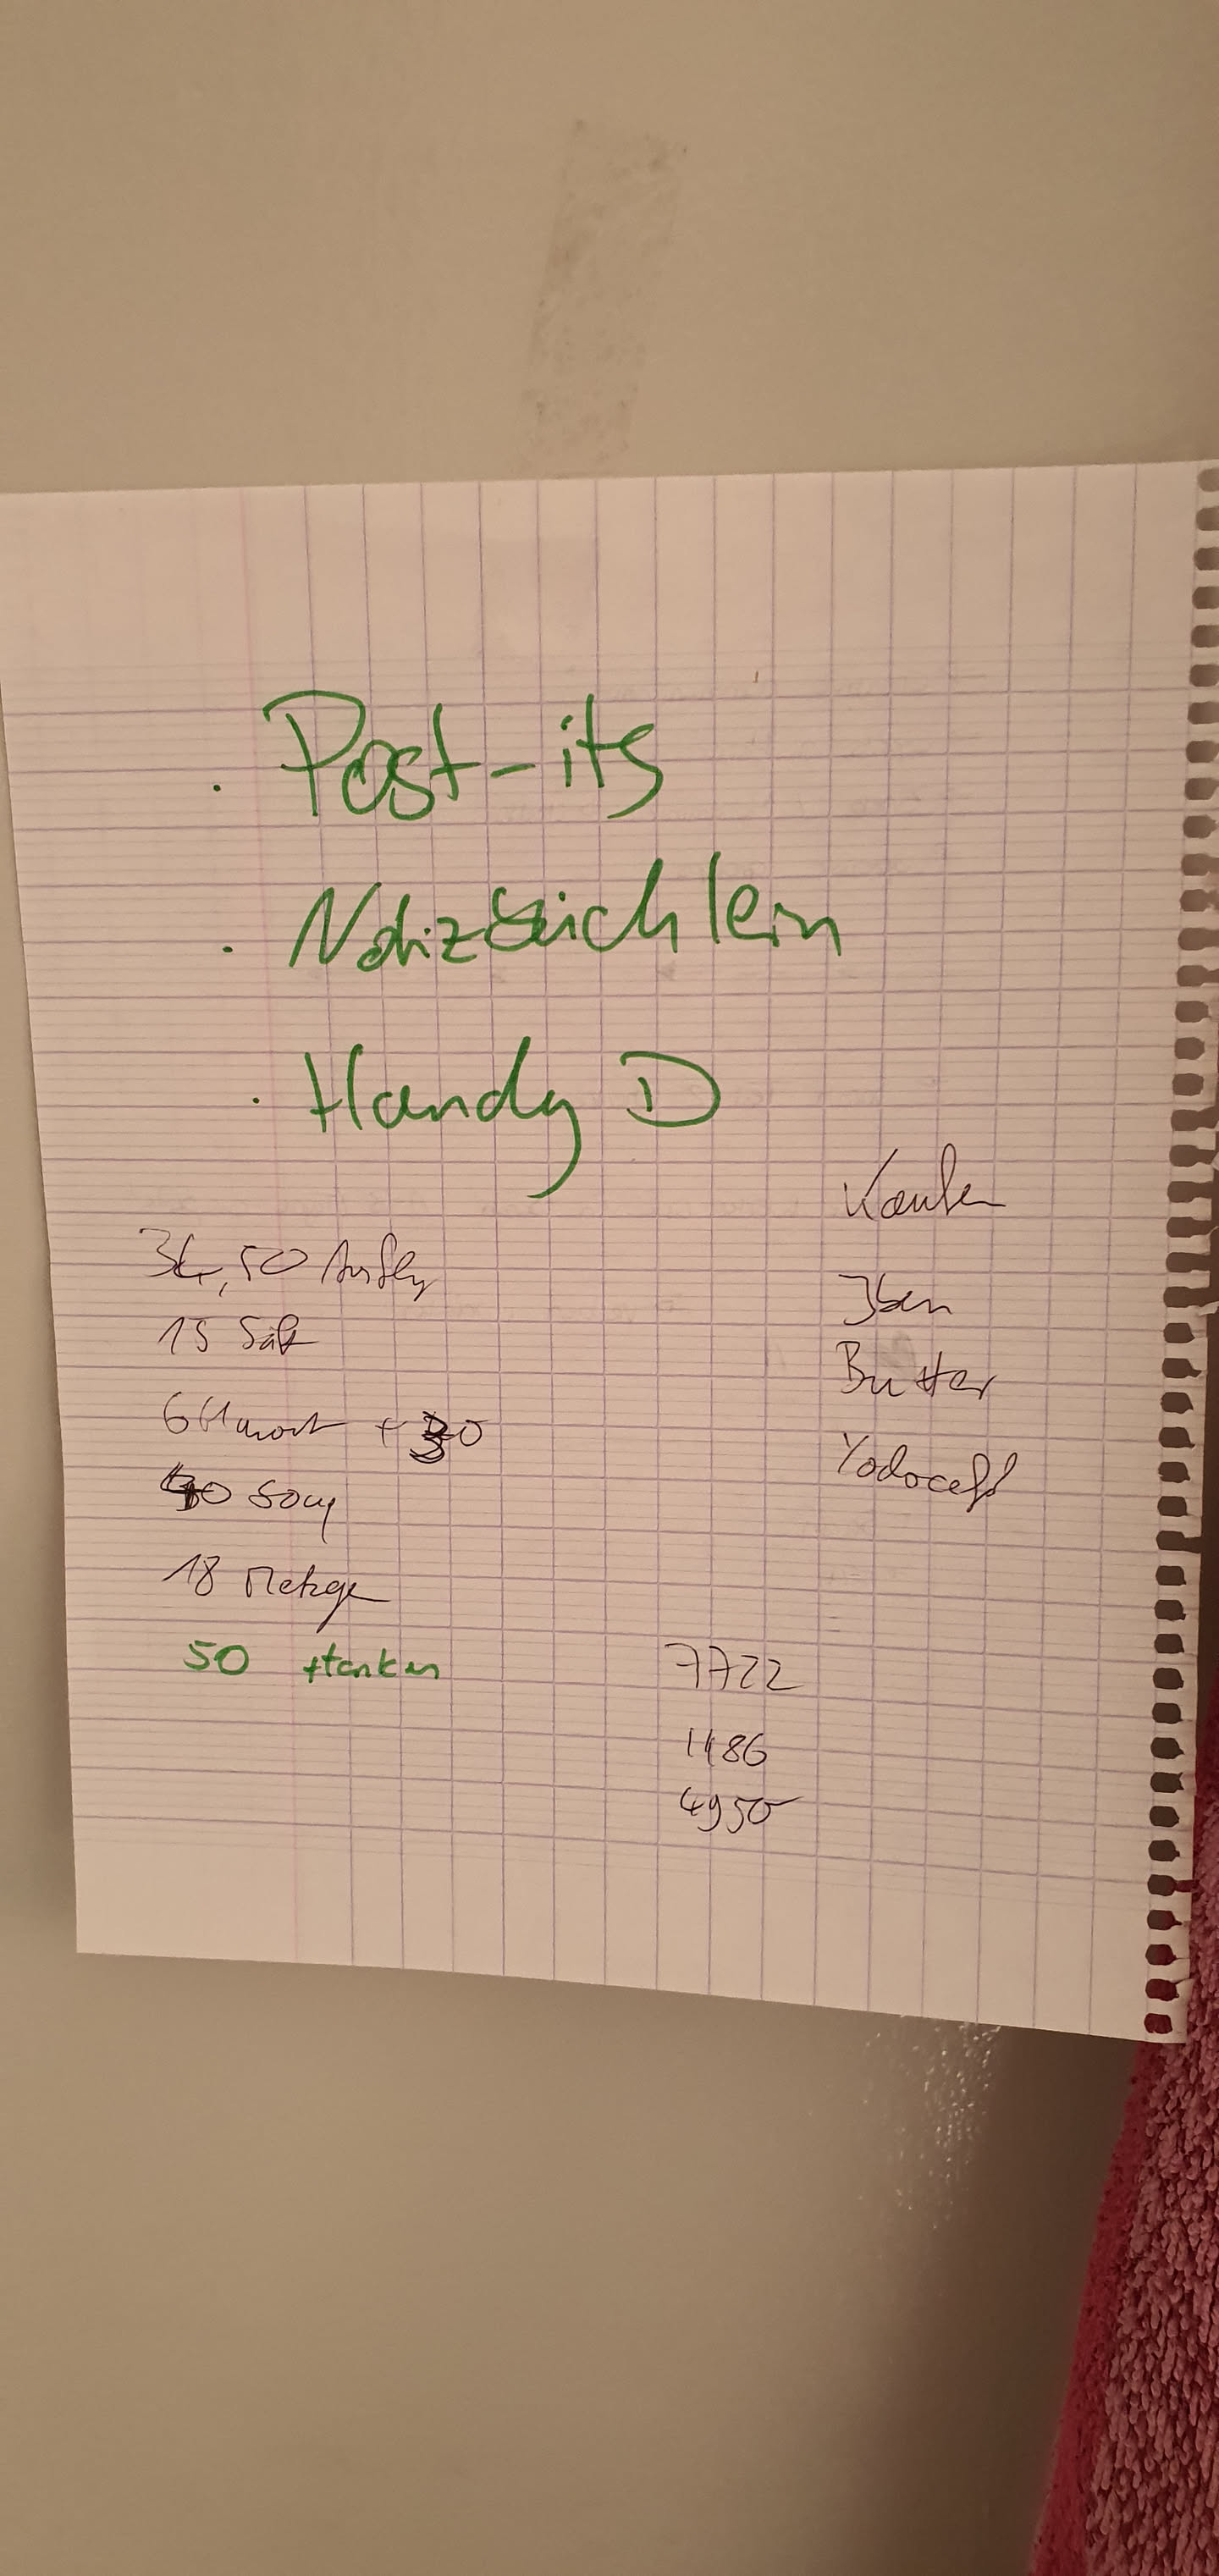 . Post-its
. Notizbüchlein
. Handy D
Kaufen
34,50 Ausflug
15 Saft
Iben
Butter
6 Hmart + 30
40 Soup
Yodocefs
18 Metzger
50 tanken
7722
1486
4950